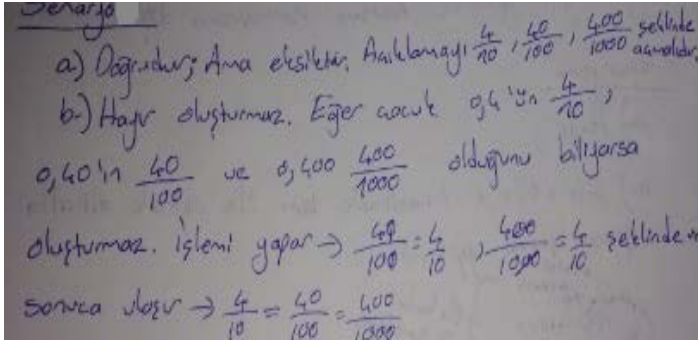 Senaryo
a) Doğrudur; Ama eksiktir. Açıklamayı 4/10, 40/100, 400/1000 şeklinde açmalıdır.
b-) Hayır oluşturmaz. Eğer çocuk 0,4'ün 4/10,
0,40'ın 40/100 ve 0,400 400/1000 olduğunu biliyorsa
oluşturmaz. İşlemi yapar → 40/100 = 4/10, 400/1000 = 4/10 şeklinde ve
sonuca ulaşır → 4/10 = 40/100 = 400/1000